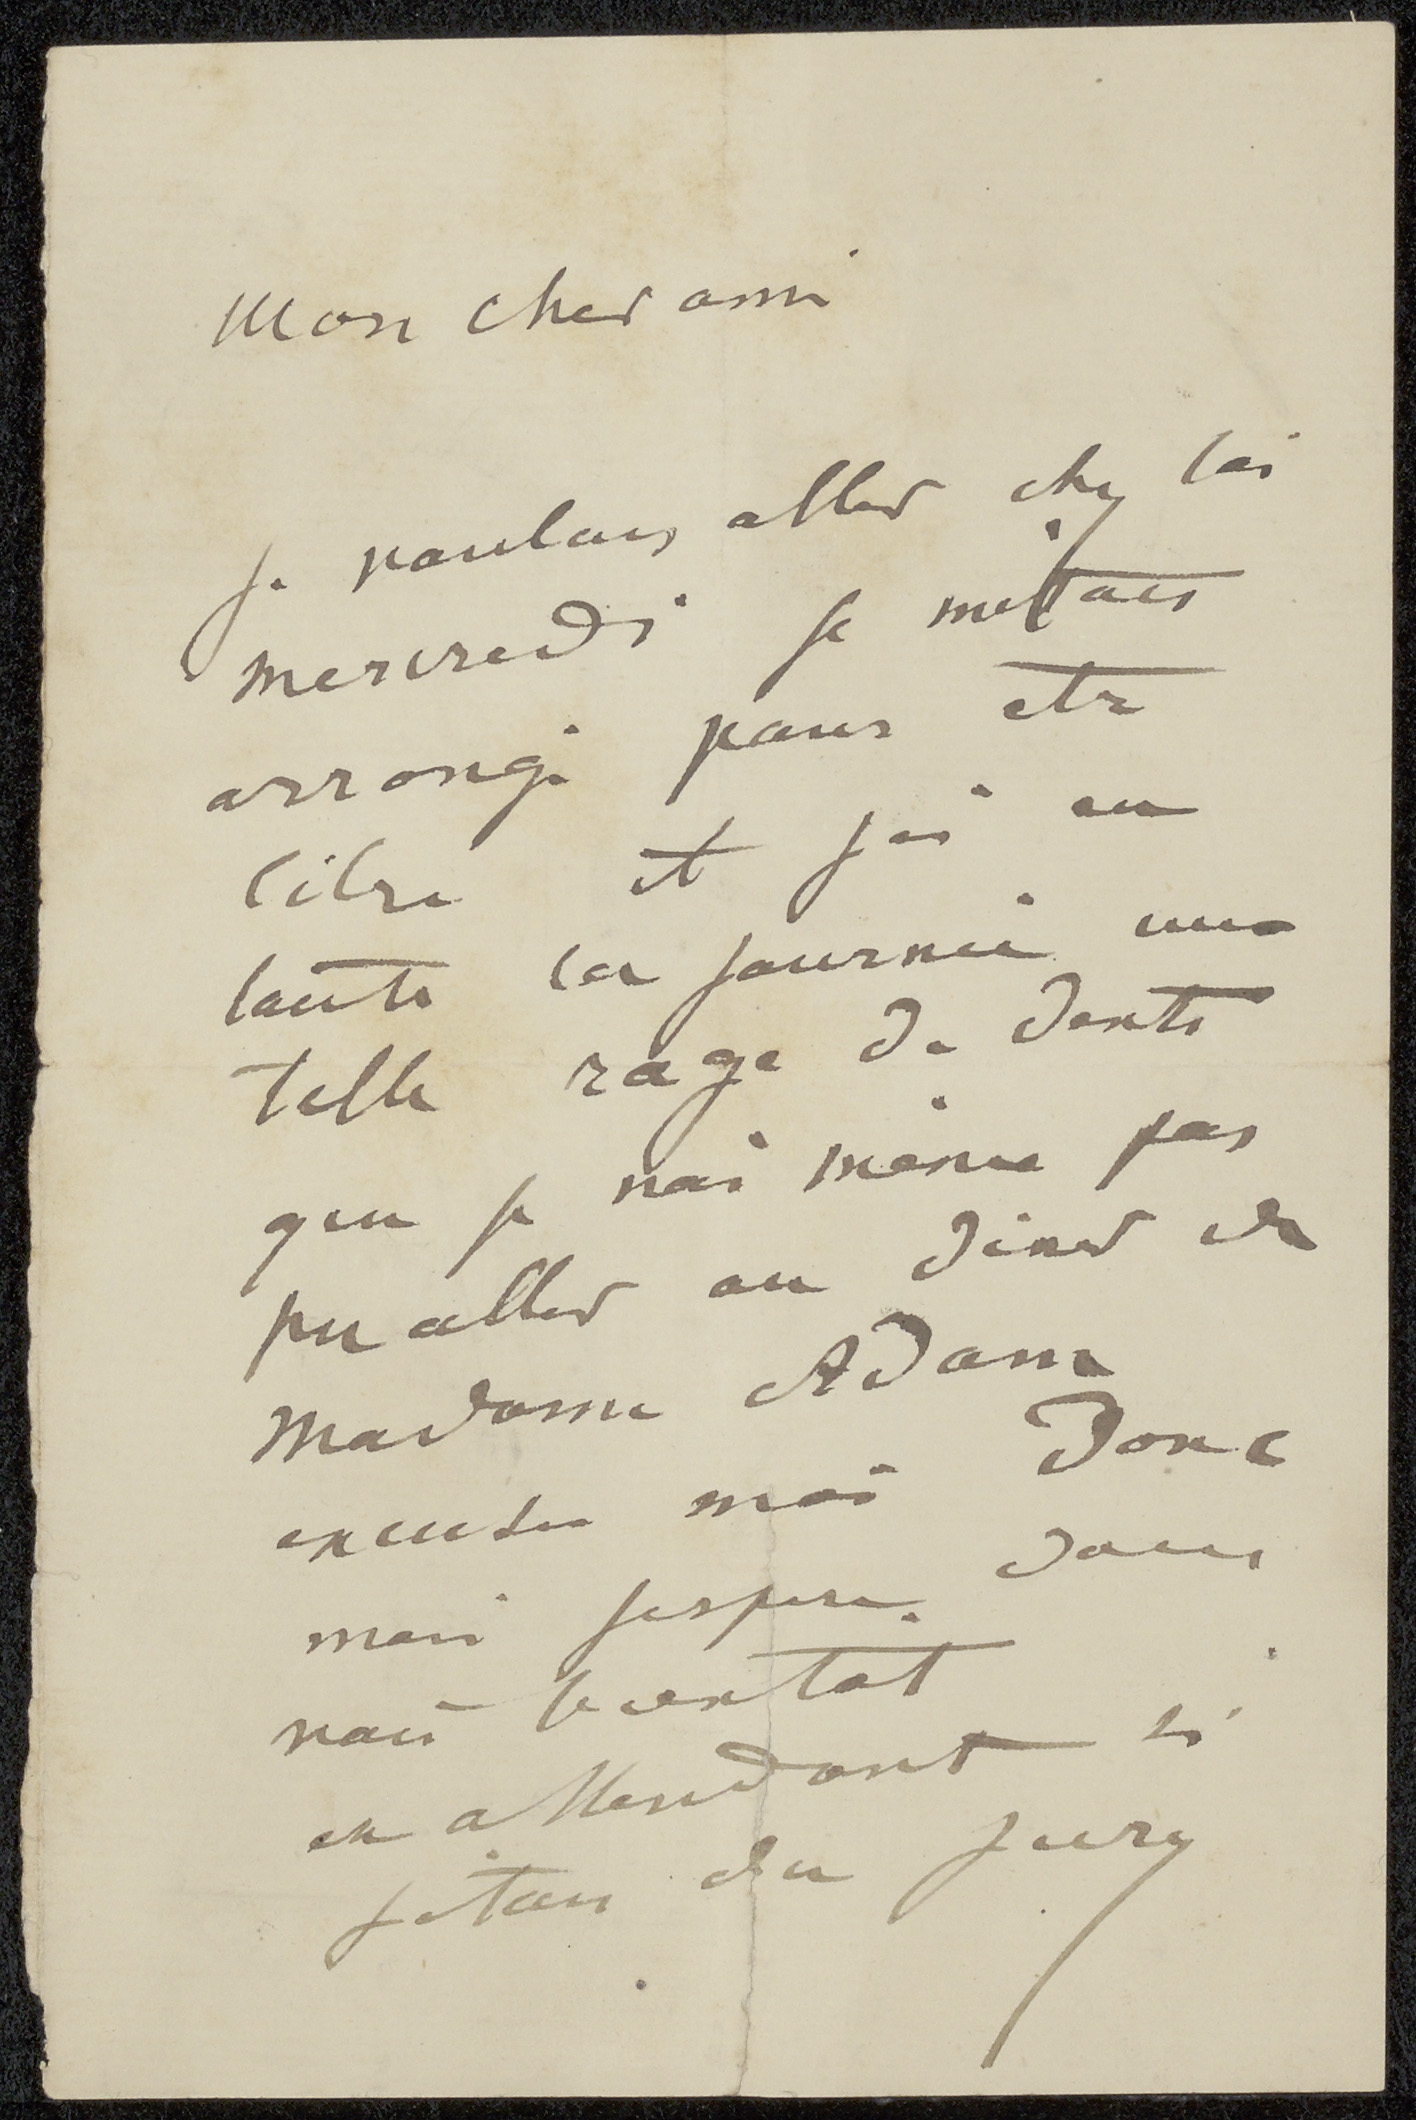 Mon cher ami
Je voulais aller chez toi
mercredi je m'étais
arrangé pour etre
libre et j'ai eu
toute la journée une
telle rage de dents
que je nai même pas
pu aller au diner de
Madame Adam
excuse moi donc
mais jespere
nous bientot
en attendant si
jetais du jury